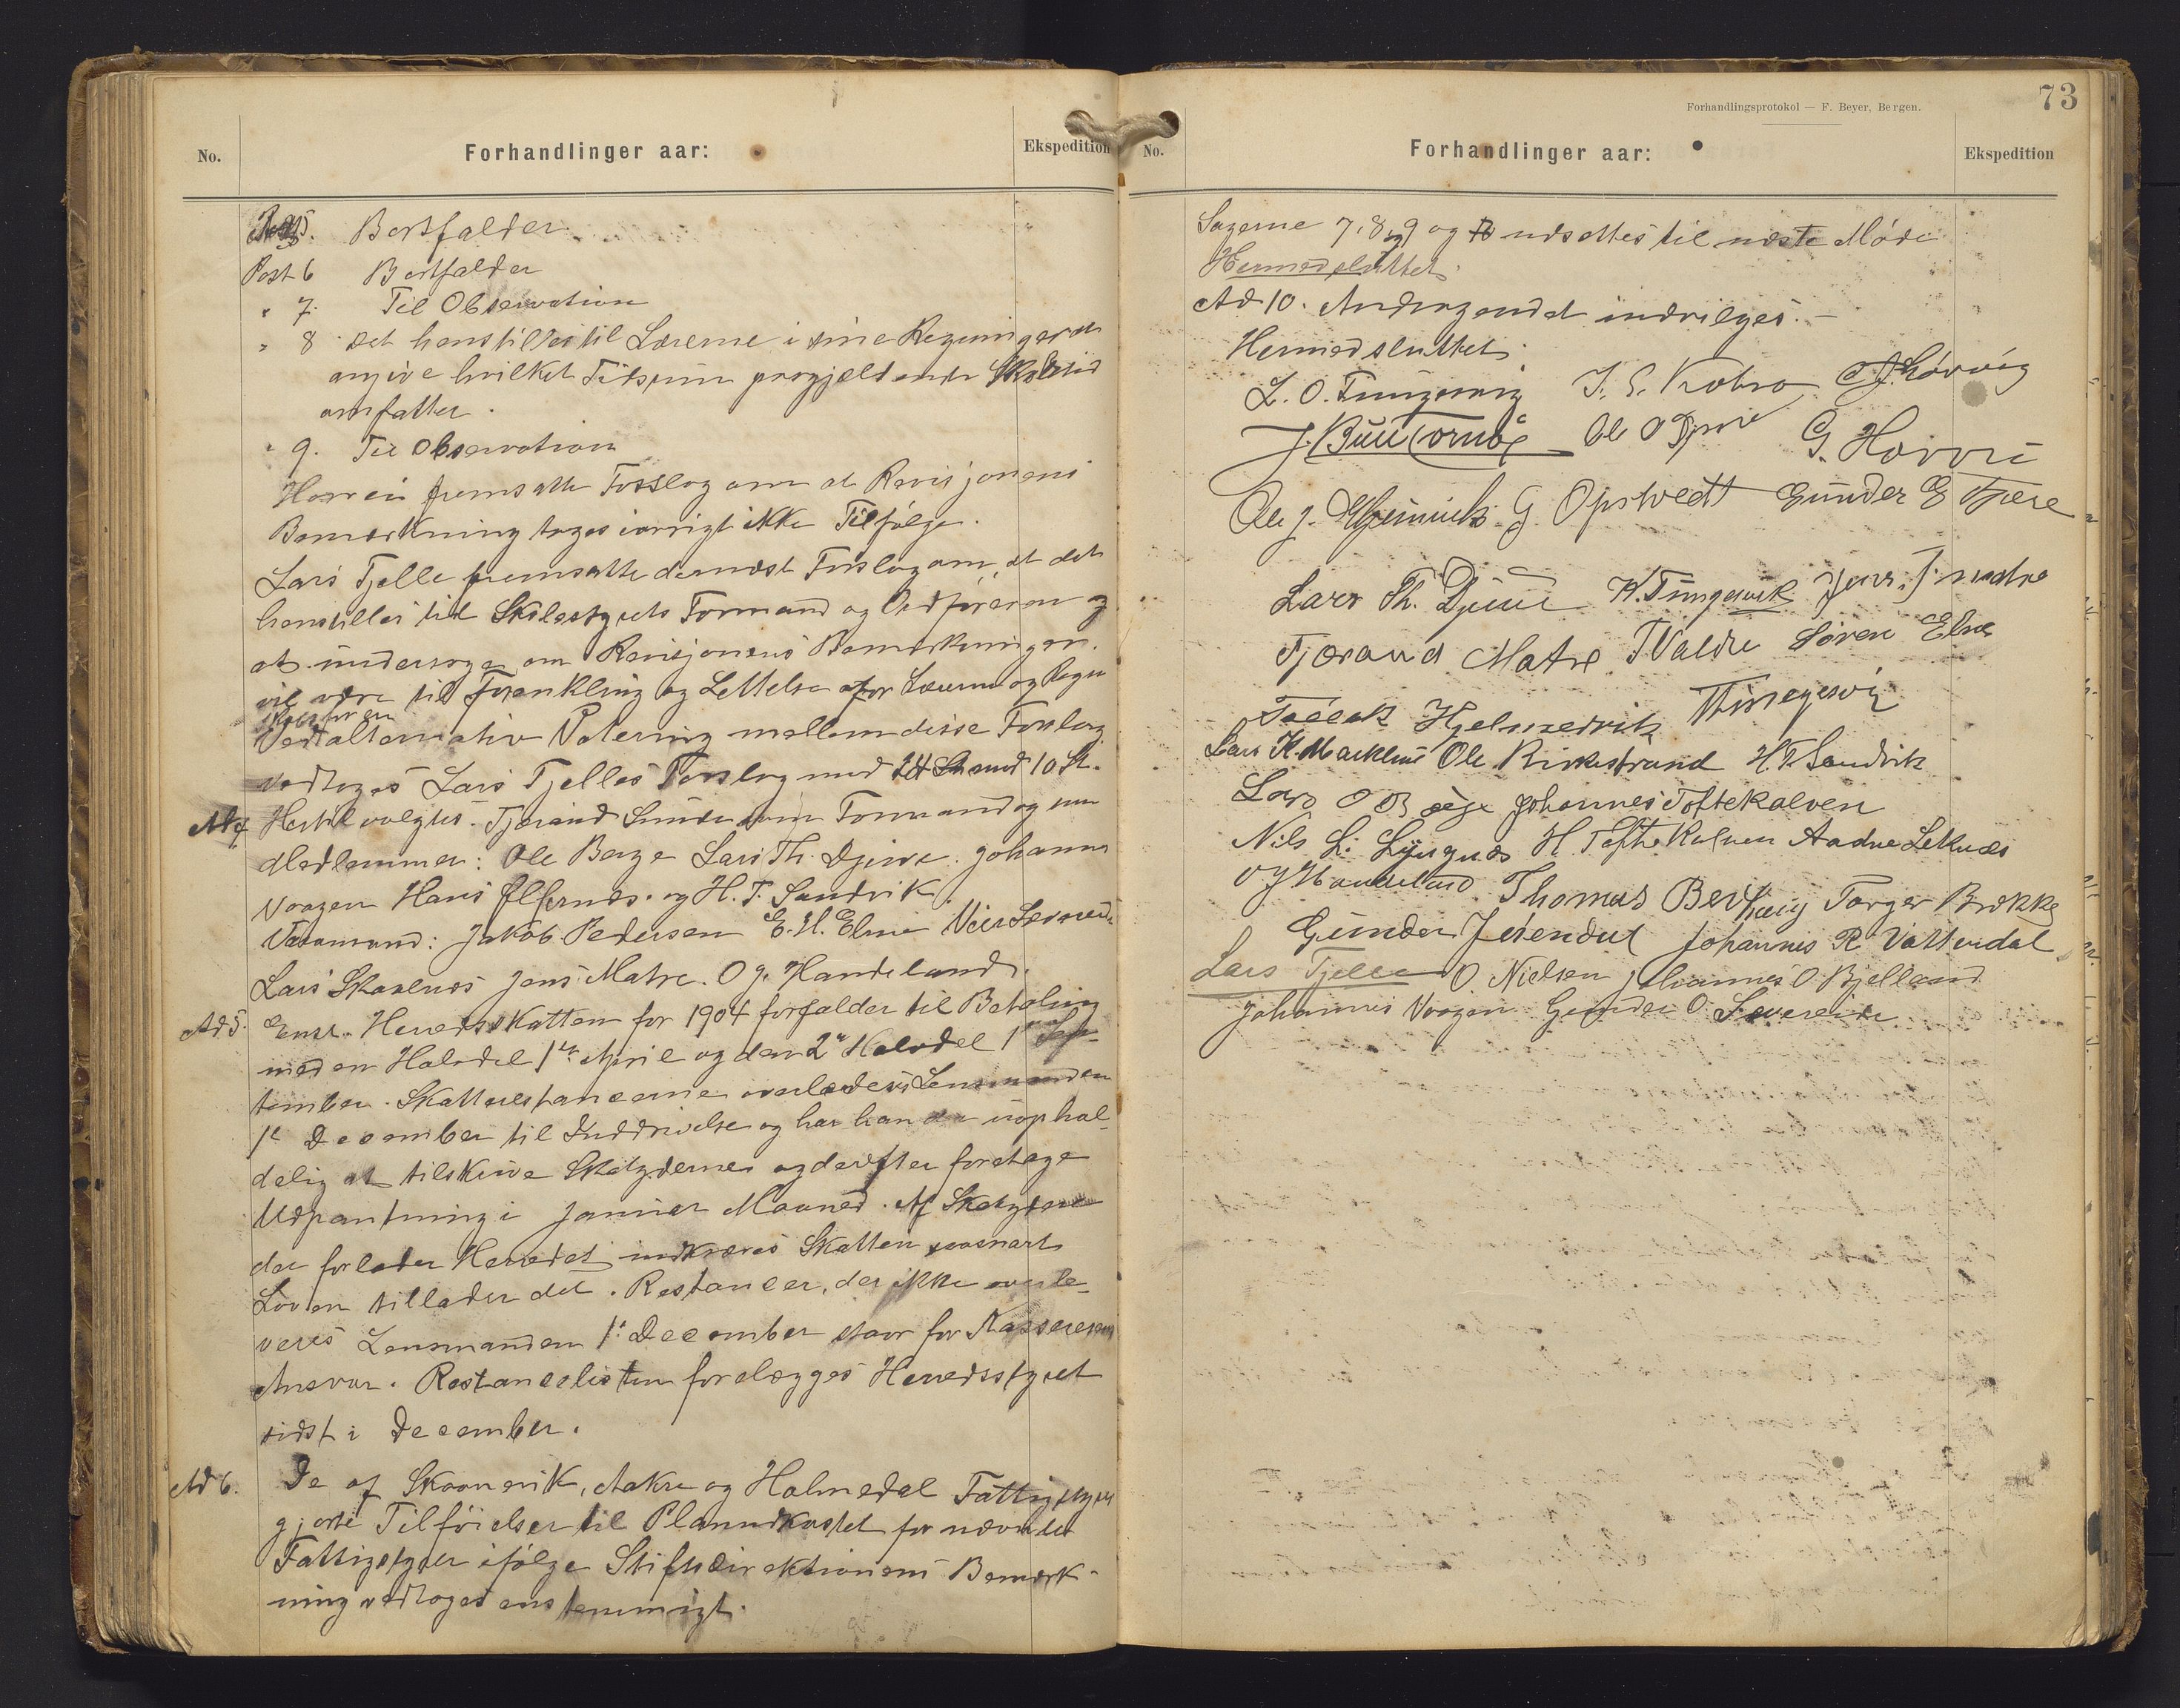 No.
Forhandlinger aar:
Ekspedition
Post 5. Bortfalder.
Post 6 Bortfalder
" 7. Til Observation
" 8 Det henstilles til Lærerne i sine Regninger at
angive hvilket Tidsrum pengjeldende Skoletid
omfatter.
" 9. Til Observation
Horvei fremsatte Forslag om at Revisjonens
Bemærkning toges iøvrigt ikke Tilfølge.
Lars Tjelle fremsatte dernæst Forslag om, at det
henstilles til Skolestyrets Formand og Ordføreren og
at undersøge om Revisjonens Bemærkninger.
vil være til Forenkling og Lettelse for Lærerne og Regn
skabsføren
Ved alternativ Votering mellem disse Forslag
vedtoges Lars Tjelles Forslag med 24 St. mod 10 St.
Ad 4 Hertil valgtes. Tjerand Sunde som Formand og som
Medlemmer: Ole Berge Lars Th. Djuve. Johannes
Vaagen Hans Elfernæs. og H. T. Sandvik.
Varamænd: Jakob Pedersen E. H. Elnæ
Lars Skaalnes Jens Matre. O. J. Handeland.
Ad 5. Enst. Herredsskatten for 1904 forfalder til Betaling
med en Halvdel 1ste April og den 2den Halvdel 1ste Sep-
tember. Skatterestancerne overlades Lensmanden
1ste December til Inddrivelse og har han da uophol-
delig at tilskrive Skatyderne og derefter foretage
Udpantning i Januar Maaned. Af Skatydere
der forlader Herredet indkræves Skatten saasnart
Loven tillader det. Restancer, der ikke overle-
veres Lensmanden 1. December staar for Kassererens
Ansvar. Restancelisten forelægges Herredsstyret
sidst i December.
Ad 6. De af Skaanevik, Aakre og Holmedal Fattigstyre
gjorte Tilføielser til Planudkastet for nævnte
Fattigstyrer ifølge Stiftsdirektionens Bemærk-
ning vedtoges enstemmigt.
Forhandlingsprotokol — F. Beyer, Bergen.
73
No.
Forhandlinger aar:
Ekspedition
Sagerne 7, 8, 9 og udsættes til næste Møde
Hermed sluttet.
Ad 10. Andragendet indvilges. –
Hermed sluttet.
L. O. Tungesvig I. S. Krobro
Ole O G. Horvei
Ole J. G Opstvedt Gunder G Tjere
Lars Th. Djuve K. Tungesvik Jens
Tjærand Matre T Valdre Søren Elnæ
Hjelmevik
Lars K. Markhus Ole Kirkestrand H. T. Sandvik
Lars O Bøge Johannes Toftekalven
Nils L. Ljusgnæs H Toftekalven Aadne Leknæs
O J Handeland Thomas Torger Brække
Gunder Johannes R Vatterdal
Lars Tjelle O. Nielsen Johannes O Bjelland
Johannes Vaagen Gunder O. Sævereide